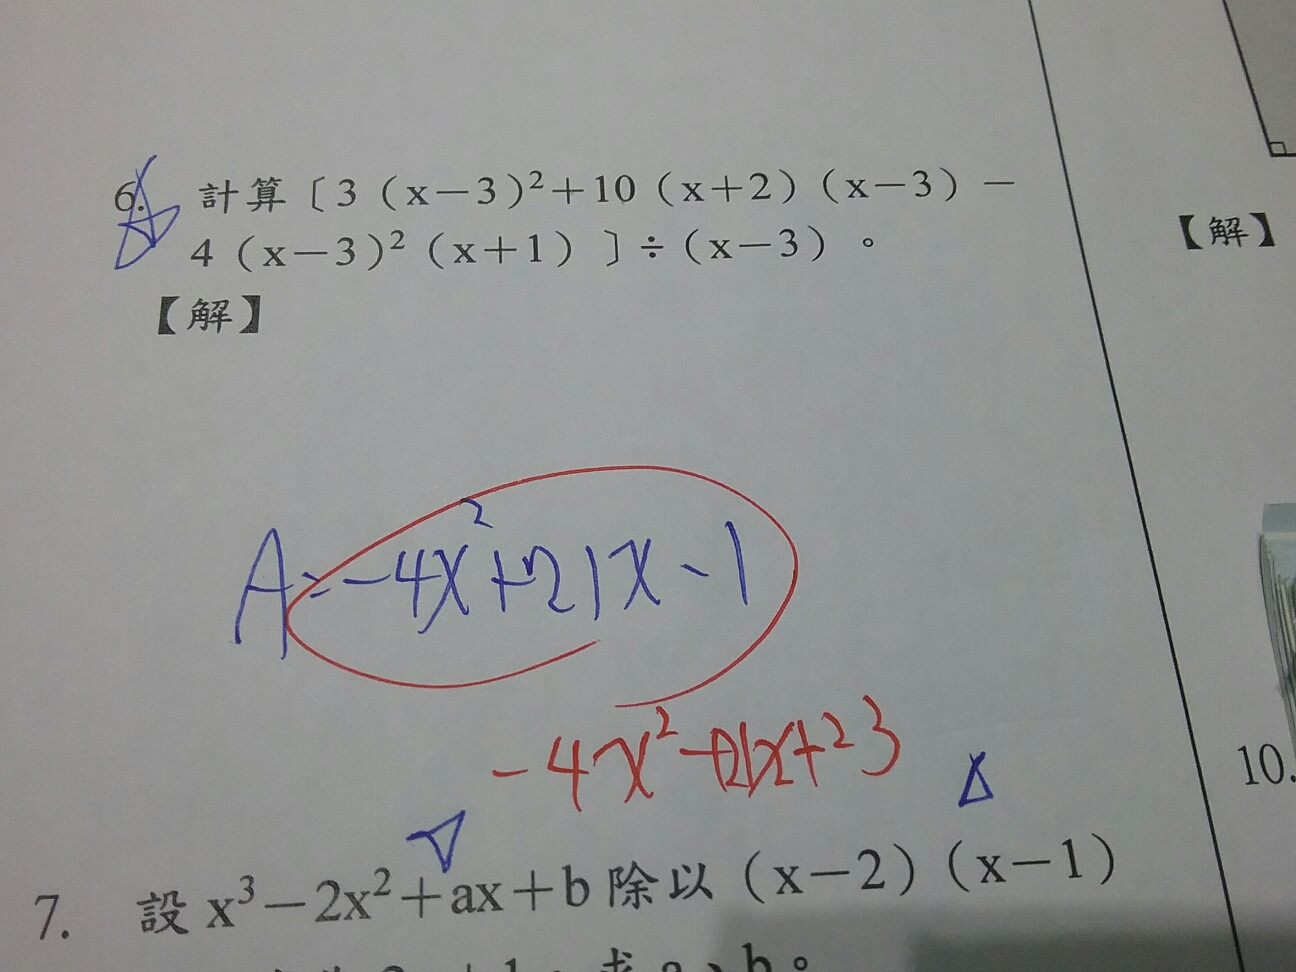 6. 計算〔3（x－3）²＋10（x＋2）（x－3）－
4（x－3）²（x＋1）〕÷（x－3）。
【解】
【解】
A=-4x²+21x-1
-4x²+21x+23
10.
7. 設 x³－2x²＋ax＋b 除以（x－2）（x－1）
求 a、b。